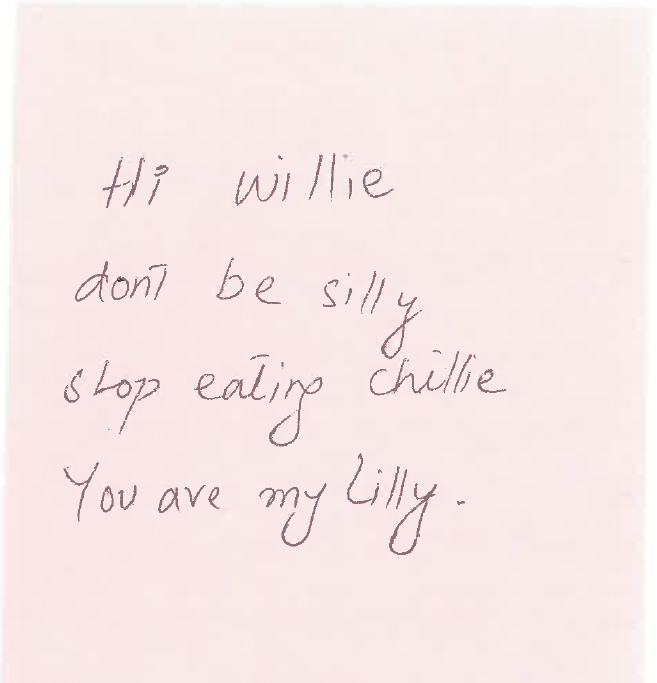 Hi willie
dont be silly
stop eating chillie
You are my Lilly.